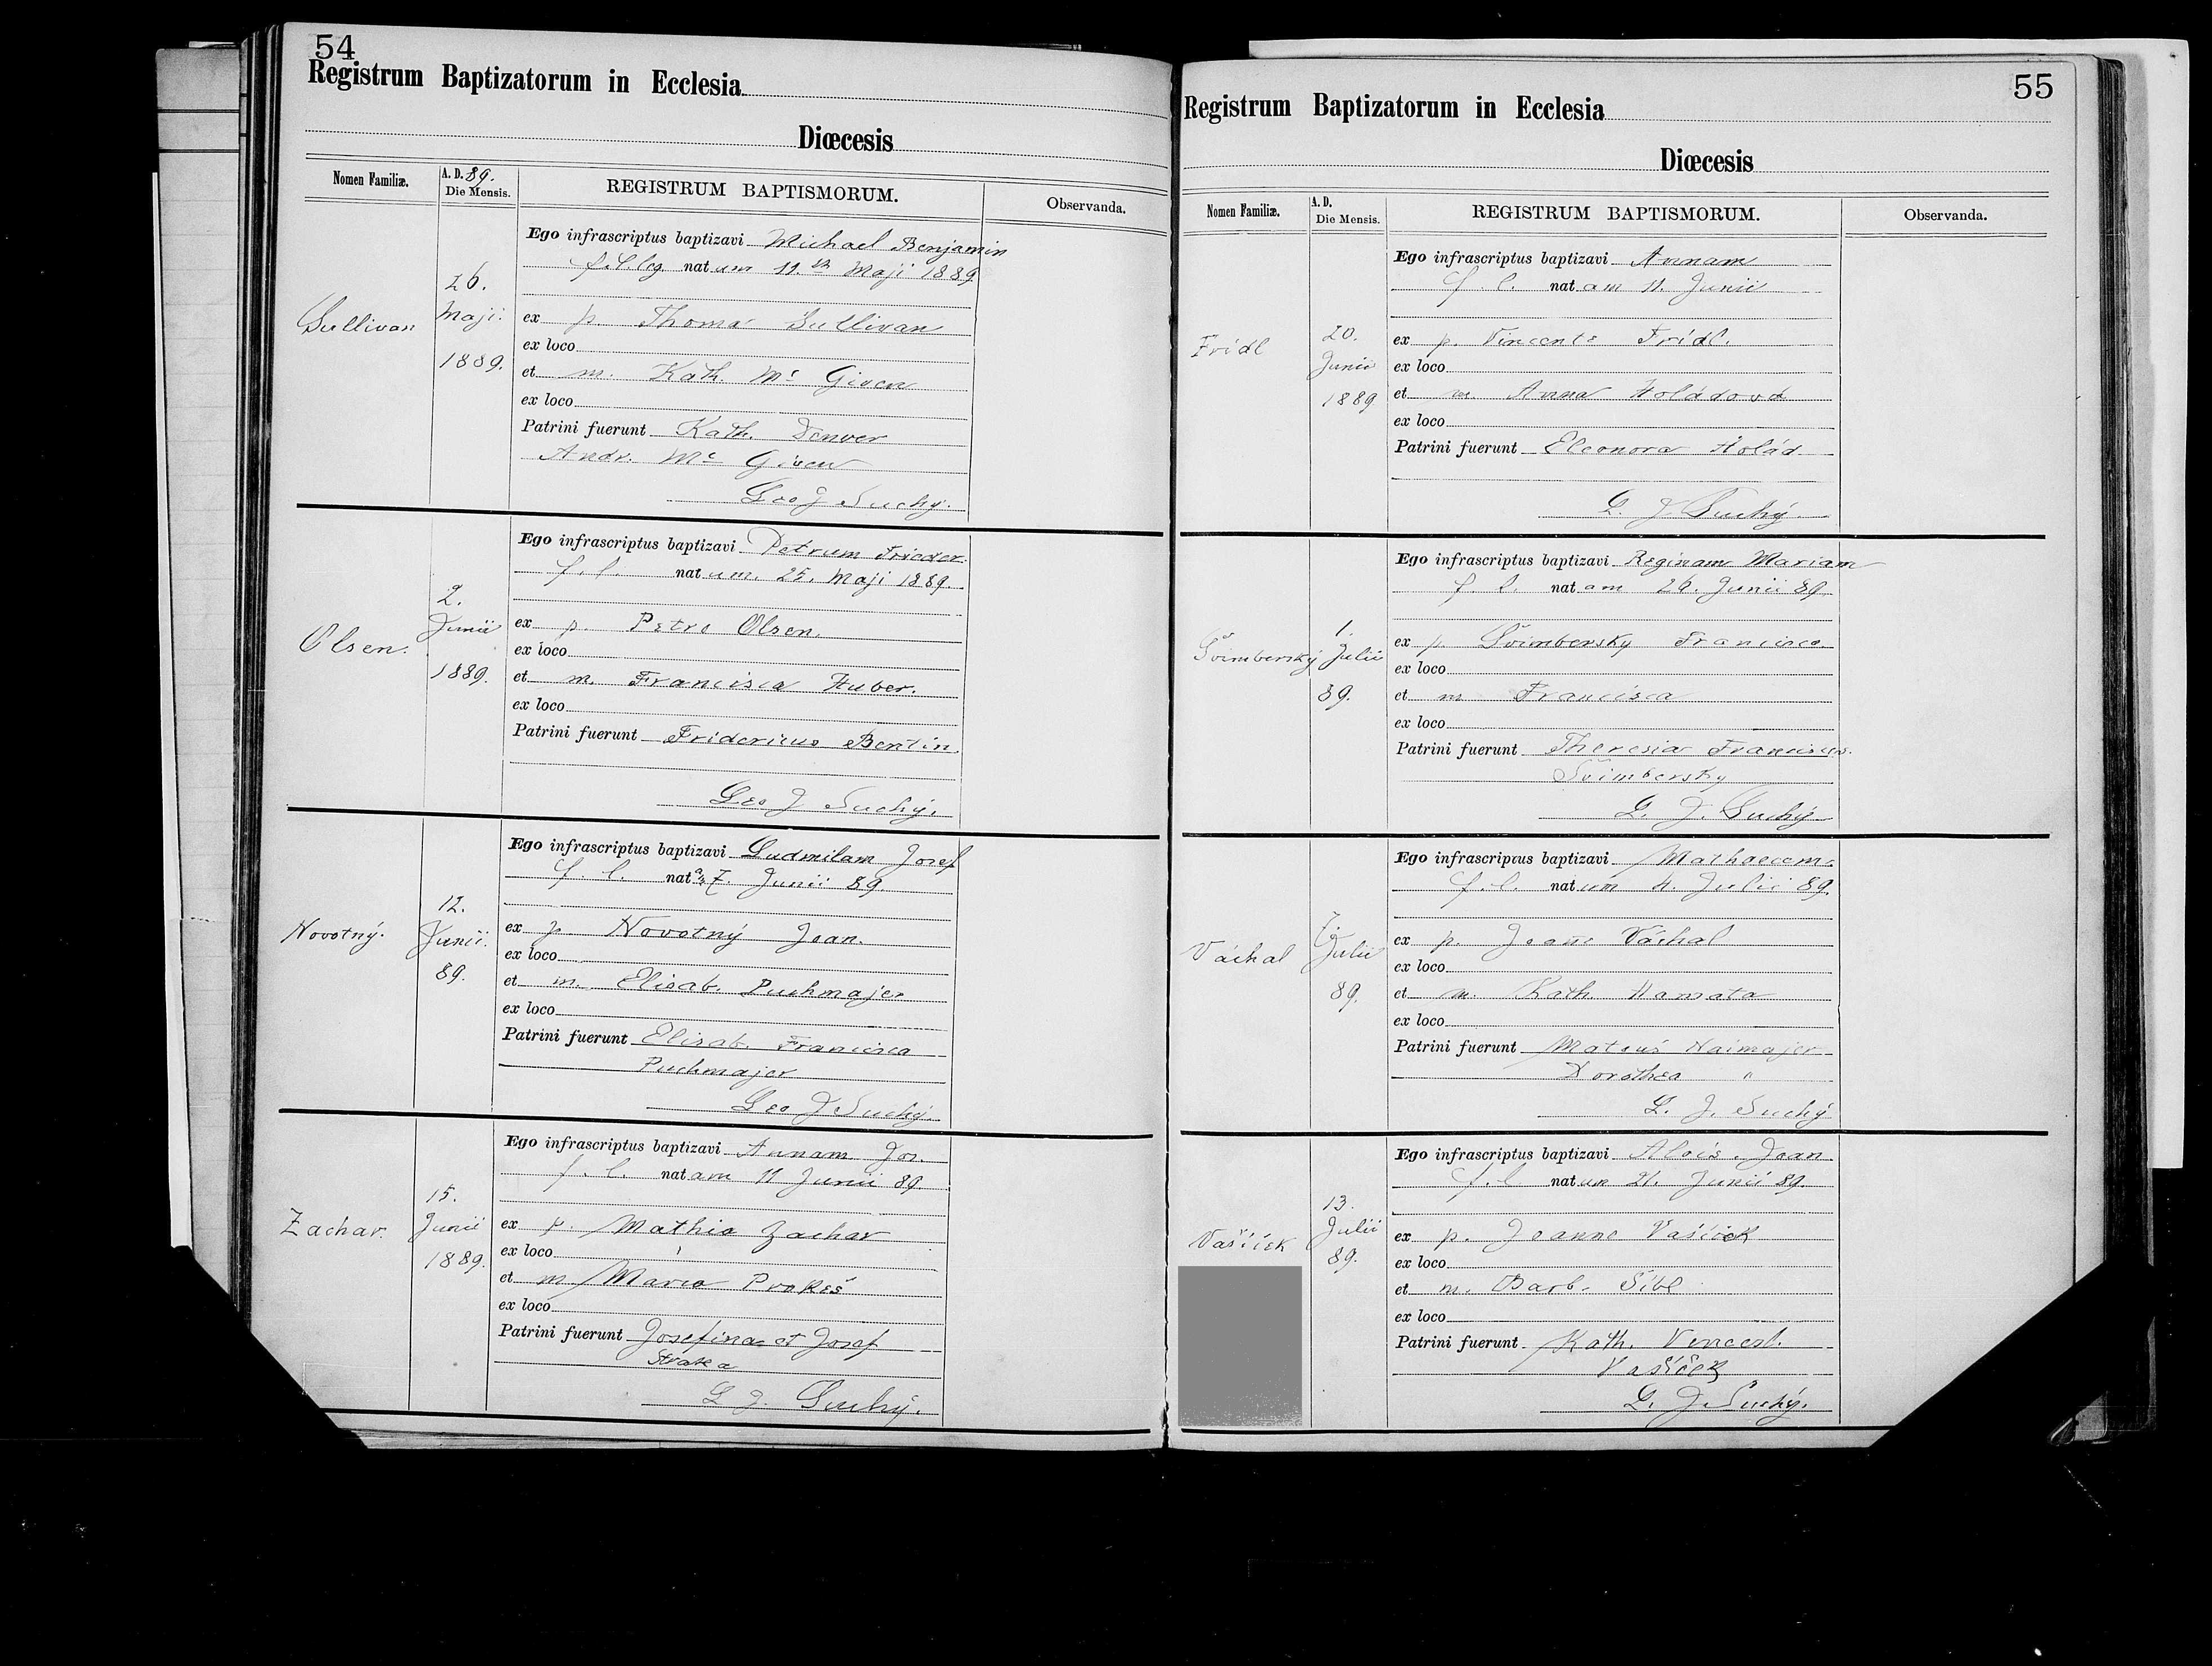 54
Registrum Baptizatorum in Ecclesia
Diœcesis
Nomen Familiæ.
A. D. 89.
Die Mensis.
REGISTRUM BAPTISMORUM.
Observanda.
Sullivan
26.
Maji
1889.
Ego infrascriptus baptizavi Michael Benjamin
f. l. leg. natum 11. Maji 1889
ex p. Thoma Sullivan
ex loco
et m. Kath. Mc Given
ex loco
Patrini fuerunt Kath. Denver
Andr. Mc Given
Leo J Suchý.
Olsen.
2.
Junii
1889.
Ego infrascriptus baptizavi Petrum Frieder.
f. l. natum. 25. Maji 1889.
ex p. Petro Olsen.
ex loco
et m. Francisca Huber.
ex loco
Patrini fuerunt Fridericus Bentin
Leo J Suchý.
Novotný.
12.
Junii.
89.
Ego infrascriptus baptizavi Ludmilam Josef
f. l. nat 7. Junii 89.
ex p Novotný Joan.
ex loco
et m. Elisab. Puchmajer
ex loco
Patrini fuerunt Elisab. Francisca
Puchmajer
Leo J Suchý.
Zachar.
15.
Junii
1889.
Ego infrascriptus baptizavi Annam Jos.
f. l. natam 11 Junii 89.
ex p. Mathia Zachar
ex loco
et m Maria Prokeš
ex loco
Patrini fuerunt Josefina et Josef
Straka
L J. Suchý.
55
Registrum Baptizatorum in Ecclesia
Diœcesis
Nomen Familiæ.
A. D.
Die Mensis.
REGISTRUM BAPTISMORUM.
Observanda.
Fridl
20.
Junii
1889
Ego infrascriptus baptizavi Annam
f. l. natam 11. Junii
ex p. Vincente Fridl.
ex loco
et m. Anna Holádová
ex loco
Patrini fuerunt Eleonora Holád
L. J. Suchý.
Švimberský
1.
Julii
89.
Ego infrascriptus baptizavi Reginam Mariam
f. l. natam 26. Junii 89
ex p. Švimbersky Francisco
ex loco
et m Francisca
ex loco
Patrini fuerunt Theresia Francisca
Švimbersky
L. J. Suchý
Váchal
7.
Julii
89.
Ego infrascriptus baptizavi Mathaeum
f. l. natum 4. Julii 89.
ex p. Joane Váchal
ex loco
et m. Kath. Hamata
ex loco
Patrini fuerunt Matouš Naimajer
Dorothea "
L. J. Suchý
Vašíček
13.
Julii
89.
Ego infrascriptus baptizavi Alois. Joan.
f. l natum 21. Junii 89.
ex p. Joanne Vašíček
ex loco
et m. Barb. Šibl
ex loco
Patrini fuerunt Kath. Vencesl.
Vašíček
L. J. Suchý.